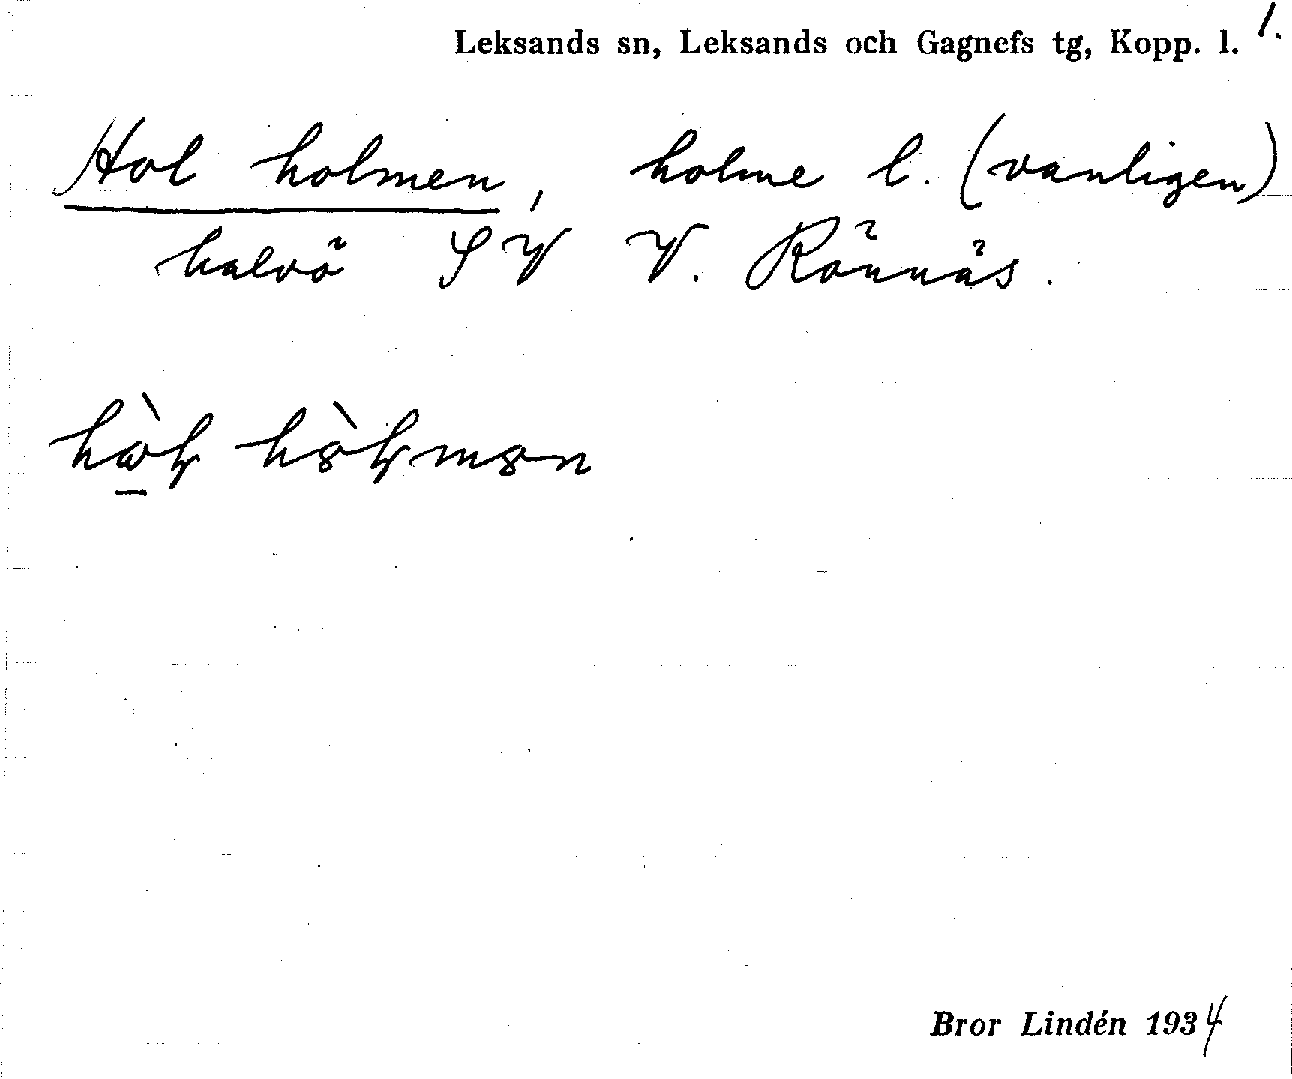 Leksands sn, Leksands och Gagnefs tg, Kopp. l. 1.
Hol holmen, holme l. (vanligen)
halvö SV V. Rönnäs.
Bror Lindén 1934